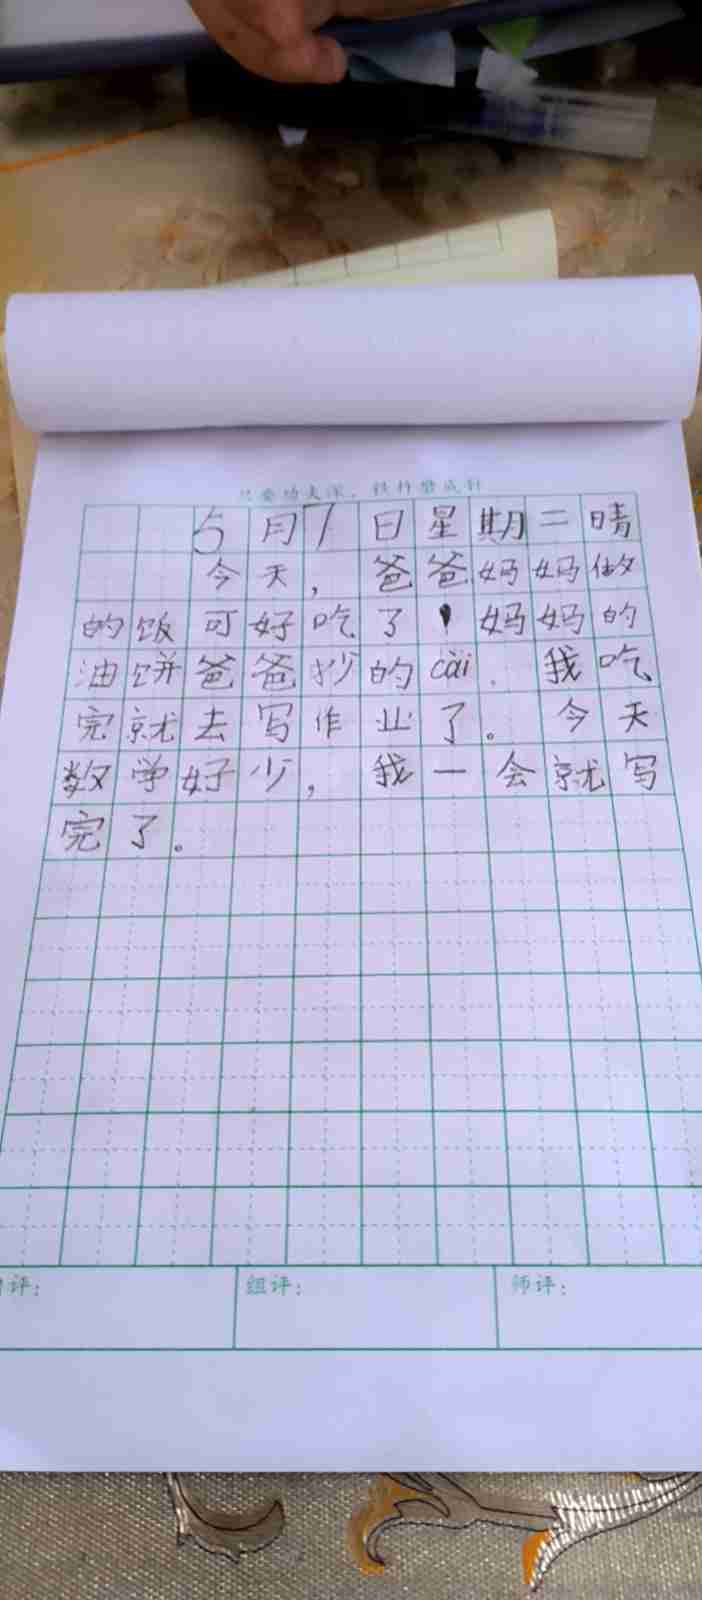 只要功夫深，铁杵磨成针
5月7日星期二晴
今天，爸爸妈妈做
的饭可好吃了！妈妈的
油饼爸爸抄的cài．我吃
完就去写作业了。今天
数学好少，我一会就写
完了。
评：
组评：
师评：